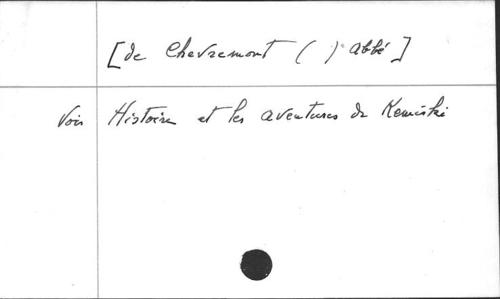 [de Chevremont ( ) abbé]
Voir Histoire et les aventures de Kemiski